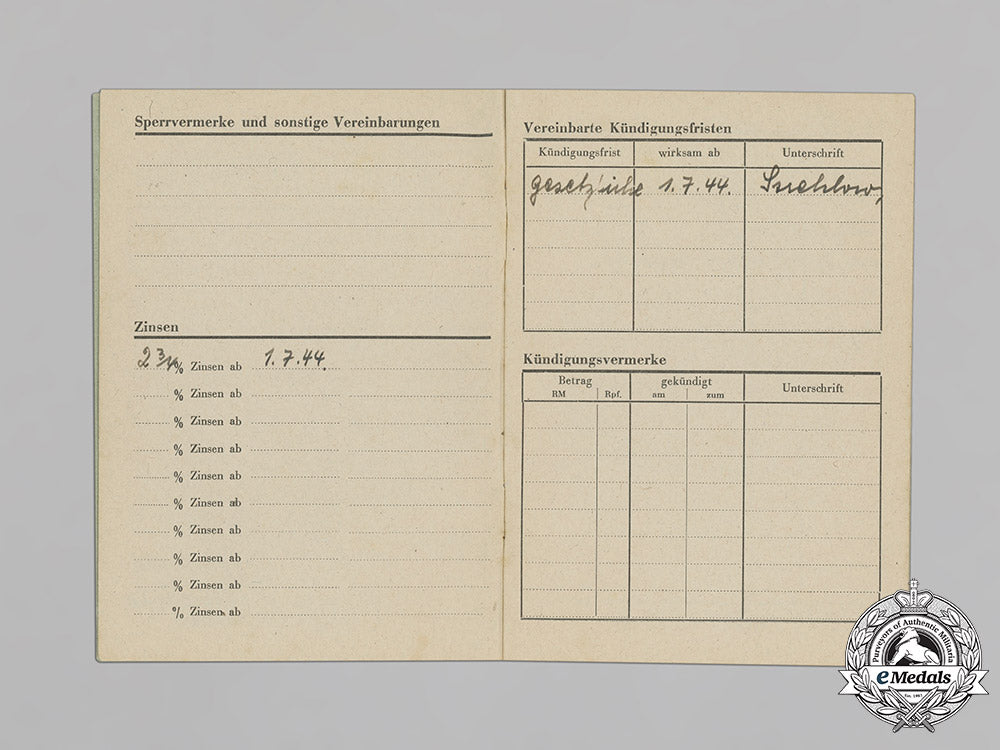 Sperrvermerke und sonstige Vereinbarungen
Zinsen
2 3/4 % Zinsen ab 1.7.44.
% Zinsen ab
% Zinsen ab
% Zinsen ab
% Zinsen ab
% Zinsen ab
% Zinsen ab
% Zinsen ab
% Zinsen ab
% Zinsen ab
Vereinbarte Kündigungsfristen
Kündigungsfrist wirksam ab Unterschrift
gesetzliche 1.7.44.
Kündigungsvermerke
Betrag gekündigt Unterschrift
RM Rpf. am zum
Purveyors of Authentic Militaria
eMedals